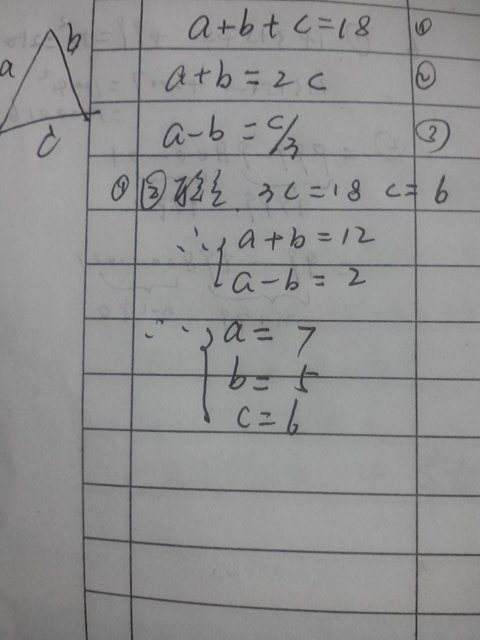 a
b
c
a+b+c=18 ①
a+b=2c ②
a-b=c/3 ③
① ② 3c=18 c=6
∴ { a+b=12
a-b=2
∴ { a=7
b=5
c=6